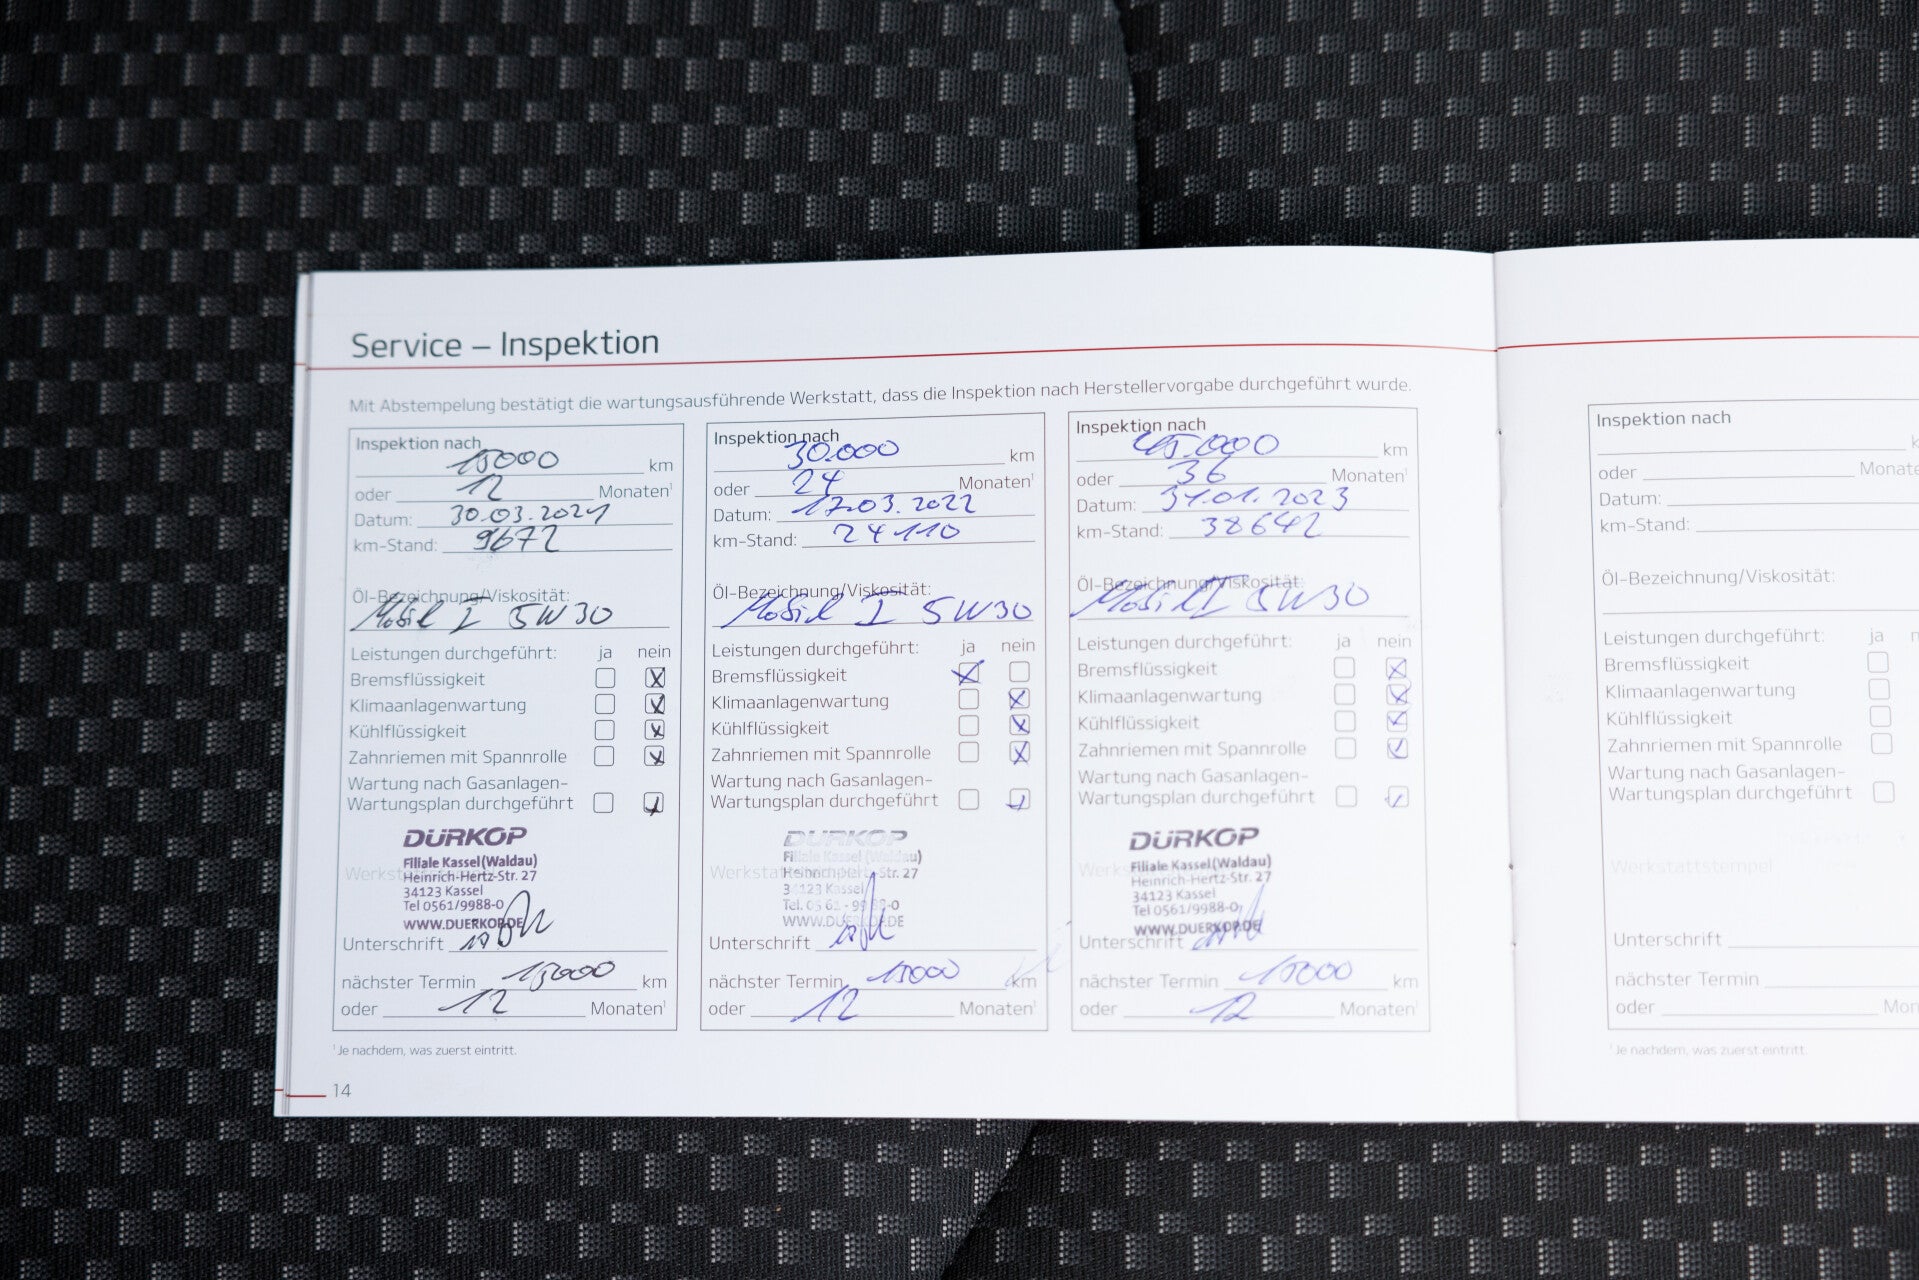 Service – Inspektion
Mit Abstempelung bestätigt die wartungsausführende Werkstatt, dass die Inspektion nach Herstellervorgabe durchgeführt wurde.
Inspektion nach
15000 km
oder 12 Monaten¹
Datum: 30.03.2021
km-Stand: 9672
Öl-Bezeichnung/Viskosität:
Mobil I 5W30
Leistungen durchgeführt: ja nein
Bremsflüssigkeit
Klimaanlagenwartung
Kühlflüssigkeit
Zahnriemen mit Spannrolle
Wartung nach Gasanlagen-
Wartungsplan durchgeführt
DÜRKOP
Filiale Kassel (Waldau)
Heinrich-Hertz-Str. 27
34123 Kassel
Tel 0561/9988-0
WWW.DUERKOP.DE
Unterschrift
nächster Termin 15000 km
oder 12 Monaten¹
¹ Je nachdem, was zuerst eintritt.
14
Inspektion nach
30.000 km
oder 24 Monaten¹
Datum: 17.03.2022
km-Stand: 24110
Öl-Bezeichnung/Viskosität:
Mobil I 5W30
Leistungen durchgeführt: ja nein
Bremsflüssigkeit
Klimaanlagenwartung
Kühlflüssigkeit
Zahnriemen mit Spannrolle
Wartung nach Gasanlagen-
Wartungsplan durchgeführt
DÜRKOP
Filiale Kassel (Waldau)
Heinrich-Hertz-Str. 27
34123 Kassel
Tel. 0561-9988-0
WWW.DUERKOP.DE
Unterschrift
nächster Termin 15000 km
oder 12 Monaten¹
Inspektion nach
45.000 km
oder 36 Monaten¹
Datum: 31.01.2023
km-Stand: 38642
Öl-Bezeichnung/Viskosität:
Mobil I 5W30
Leistungen durchgeführt: ja nein
Bremsflüssigkeit
Klimaanlagenwartung
Kühlflüssigkeit
Zahnriemen mit Spannrolle
Wartung nach Gasanlagen-
Wartungsplan durchgeführt
DÜRKOP
Filiale Kassel (Waldau)
Heinrich-Hertz-Str. 27
34123 Kassel
Tel 0561/9988-0
WWW.DUERKOP.DE
Unterschrift
nächster Termin 15000 km
oder 12 Monaten¹
Inspektion nach
oder Monate
Datum:
km-Stand:
Öl-Bezeichnung/Viskosität:
Leistungen durchgeführt: ja
Bremsflüssigkeit
Klimaanlagenwartung
Kühlflüssigkeit
Zahnriemen mit Spannrolle
Wartung nach Gasanlagen-
Wartungsplan durchgeführt
Werkstattstempel
Unterschrift
nächster Termin
oder Mon
¹ Je nachdem, was zuerst eintritt.